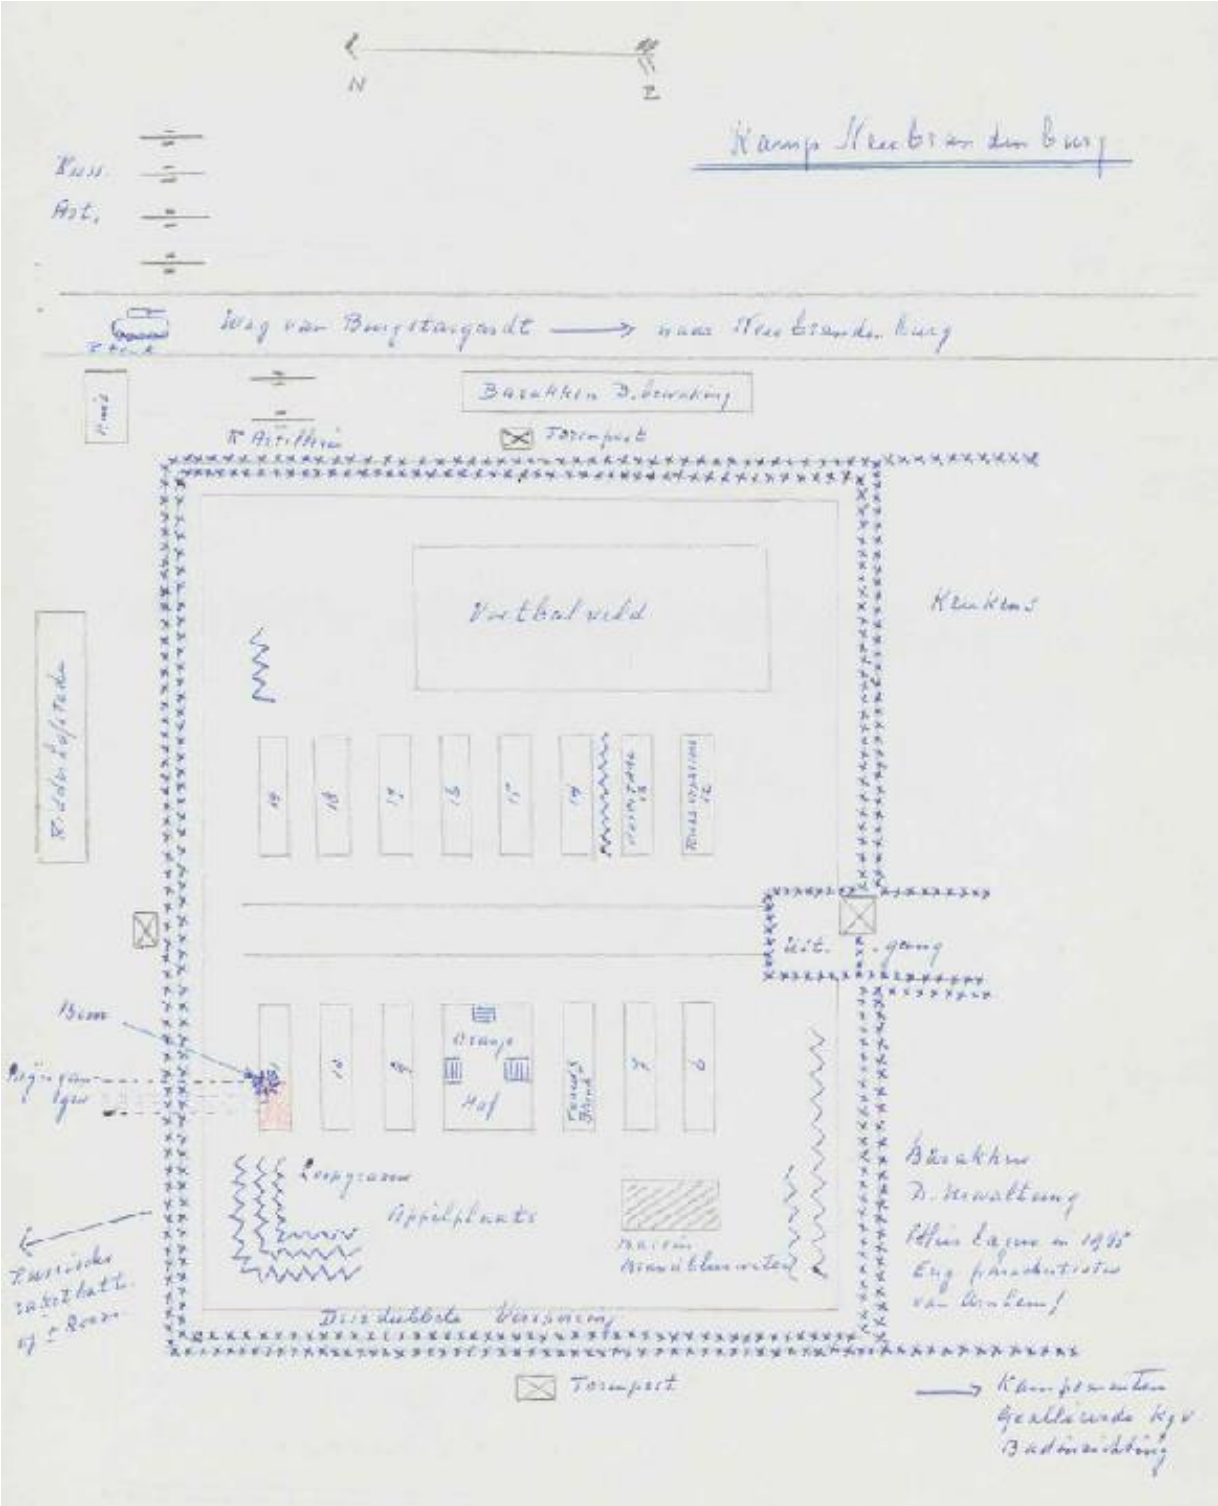 N
Z
Kamp Neubrandenburg
Russ.
Art.
Weg van Burgstargardt → naar Neubrandenburg
Barakken D. bewaking
R Artillerie
Torenpost
Voetbalveld
Keukens
19
18
17
16
15
14
13
12
Uit. . gang
Bom
10
9
Oranje
Hof
7
6
Loopgraven
Appèlplaats
Barakken
D. Verwaltung
in 1945
Eng parachutisten
van Arnhem!
Russische
Driedubbele Versperring
Torenpost
→ Kampementen
Geallieerde Kgv
Badinrichting